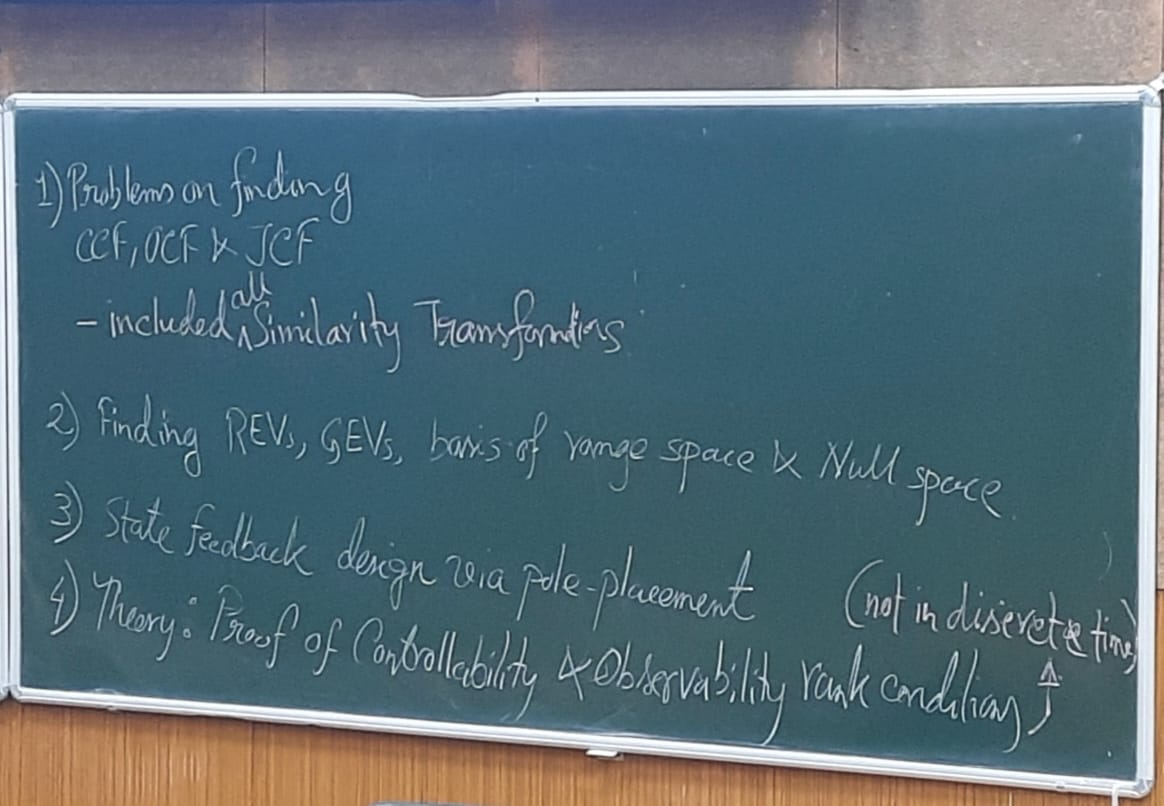 1) Problems on finding
CCF, OCF & JCF
- included all Similarity Transformations
2) Finding REVs, GEVs, basis of range space & Null space
3) State feedback design via pole-placement
(not in discrete time)
4) Theory: Proof of Controllability & Observability rank conditions